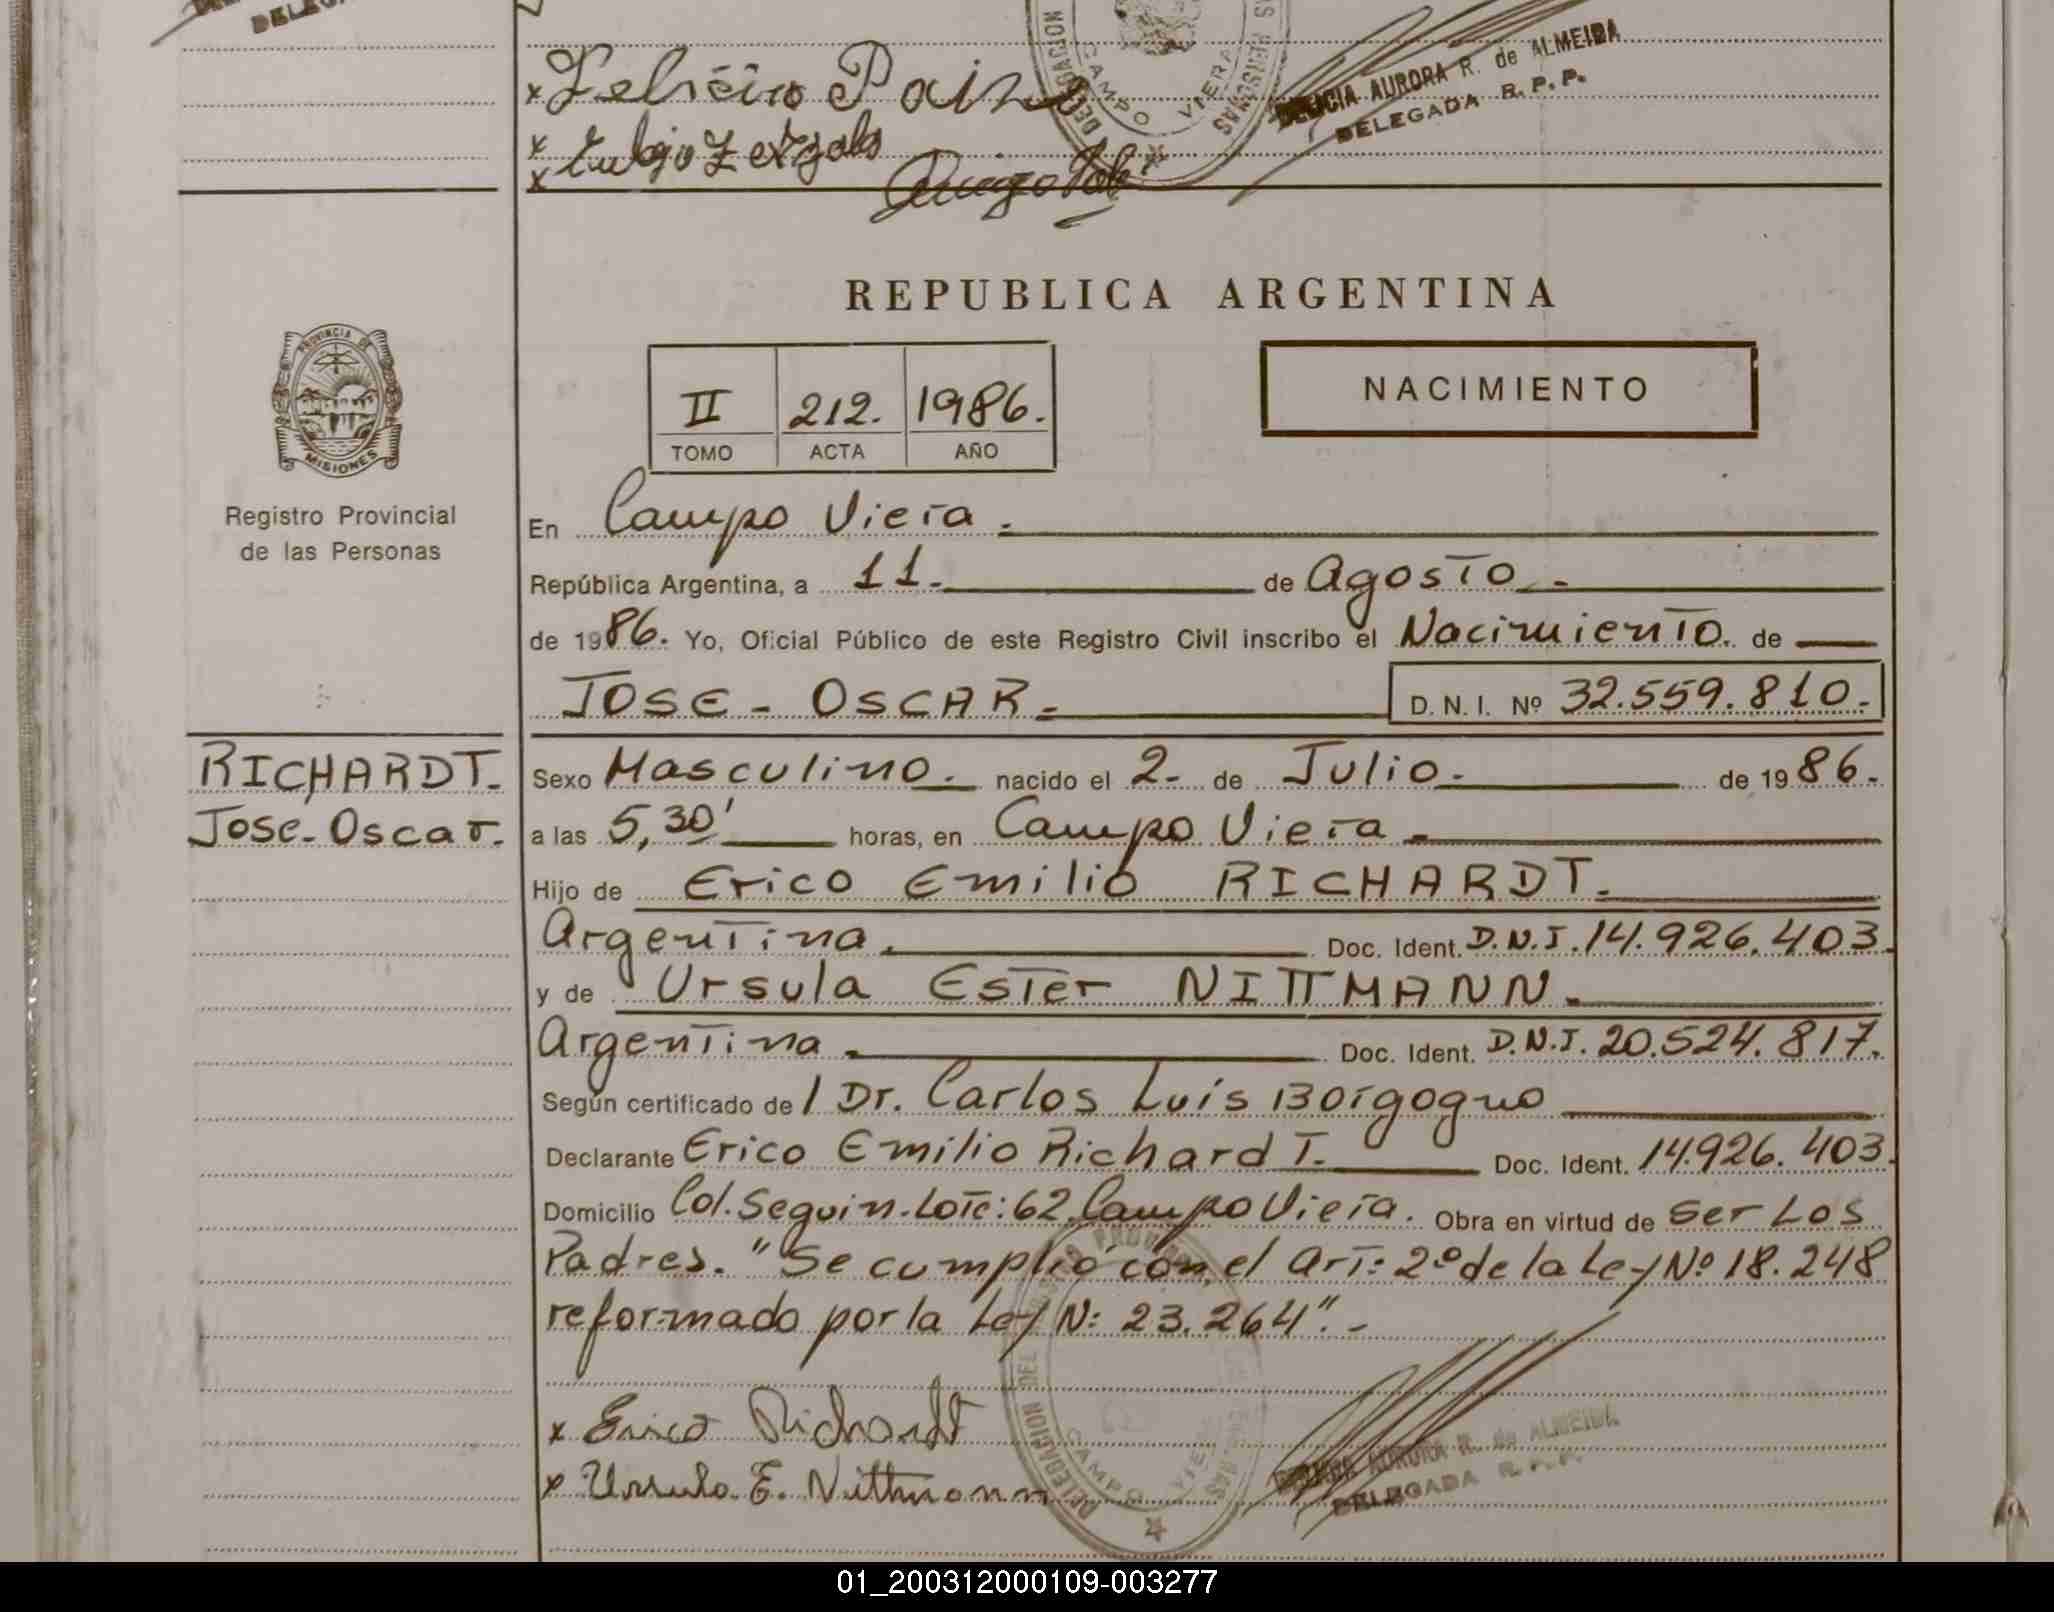 DELEGA
Felicio Pain
Eulogio Zergals
DELEGACION
CAMPO VIERA
PERSONAS
DELICIA AURORA R. de ALMEIDA
DELEGADA R. P. P.
REPUBLICA ARGENTINA
PROVINCIA DE
MISIONES
Registro Provincial
de las Personas
II 212. 1986.
TOMO ACTA AÑO
NACIMIENTO
En Campo Viera.
República Argentina, a 11. de Agosto.
de 1986. Yo, Oficial Público de este Registro Civil inscribo el Nacimiento. de
JOSE - OSCAR. D. N. I. Nº 32.559.810.-
RICHARDT.
Jose-Oscar.
Sexo Masculino. nacido el 2. de Julio. de 1986.
a las 5,30' horas, en Campo Viera.
Hijo de Erico Emilio RICHARDT.
Argentina. Doc. Ident. D.N.I. 14.926.403.
y de Ursula Ester NITTMANN.
Argentina. Doc. Ident. D.N.I. 20.524.817.
Según certificado de / Dr. Carlos Luis Borgogno
Declarante Erico Emilio Richard T. Doc. Ident. 14.926.403.
Domicilio Col. Seguin. Lote: 62. Campo Viera. Obra en virtud de Ser Los
Padres. "Se cumplió con el Art: 2º de la Ley Nº 18.248
reformado por la Ley N: 23.264".-
x Erico Richardt
x Ursula E. Nittmann
DELEGACION DEL
CAMPO VIERA
AURORA R. de ALMEIDA
DELEGADA R. P. P.
01_200312000109-003277